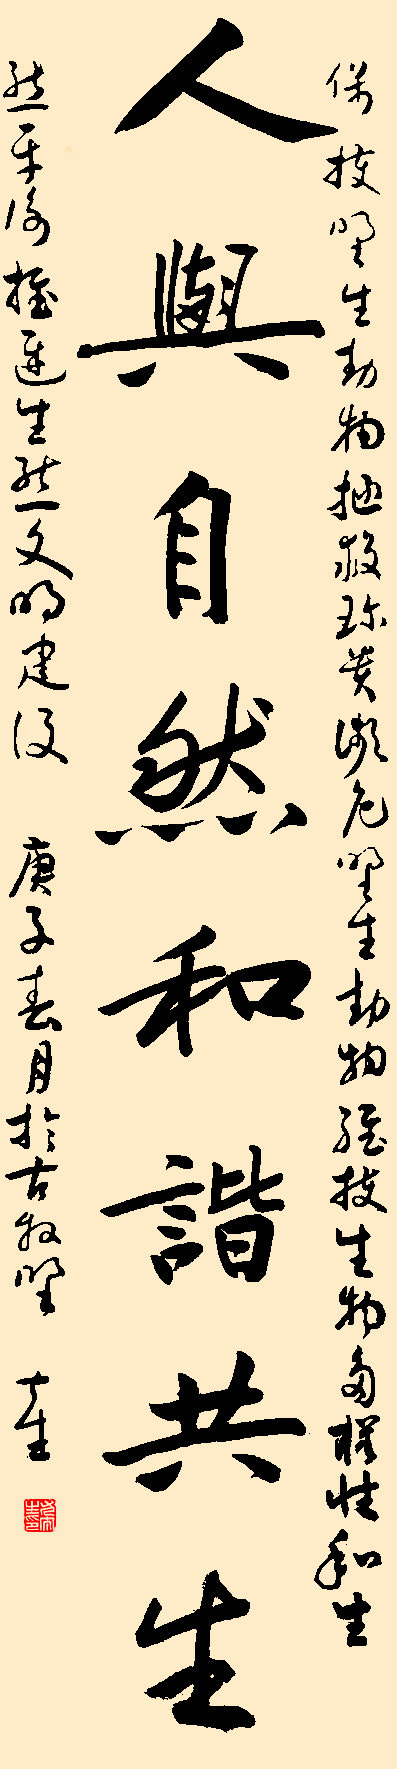 保護野生動物拯救珍貴瀕危野生動物維護生物多樣性和生
人與自然和諧共生
態平衡推進生態文明建設 庚子春月於古牧野